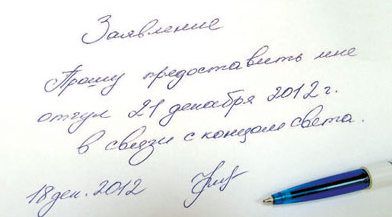 Заявление
Прошу предоставить мне
отгул 21 декабря 2012 г.
в связи с концом света.
18 дек. 2012